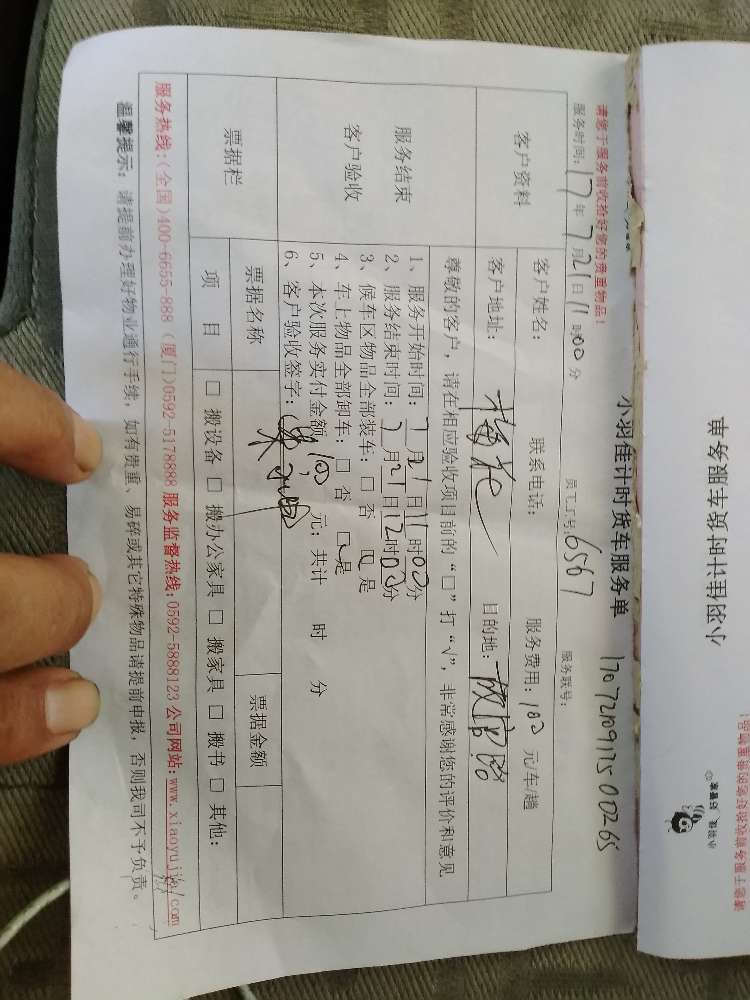 小羽佳计时货车服务单
请您于服务前收拾好您的贵重物品！
小羽佳计时货车服务单
请您于服务前收拾好您的贵重物品！
员工工号：6567
服务联号：17072109112500265
服务时间：17年7月21日11时00分
客户资料
客户姓名：
联系电话：
服务费用：100元/车/趟
客户地址：
目的地：
服务结束
客户验收
尊敬的客户，请在相应验收项目前的“□”打“√”，非常感谢您的评价和意见
1、服务开始时间：7月21日11时00分
2、服务结束时间：7月21日12时00分
3、候车区物品全部装车：□ 否 □ 是
4、车上物品全部卸车：□ 否 □ 是
5、本次服务实付金额：100元；共计 时 分
6、客户验收签字：
票据栏
票据名称
票据金额
项 目
□ 搬设备 □ 搬办公家具 □ 搬家具 □ 搬书 □ 其他：
服务热线：(全国)400-6655-888 (厦门)0592-5178888 服务监督热线：0592-5888123 公司网站：www.xiaoyujia.com
温馨提示：请提前办理好物业通行手续，如有贵重、易碎或其它特殊物品请提前申报，否则我司不予负责。